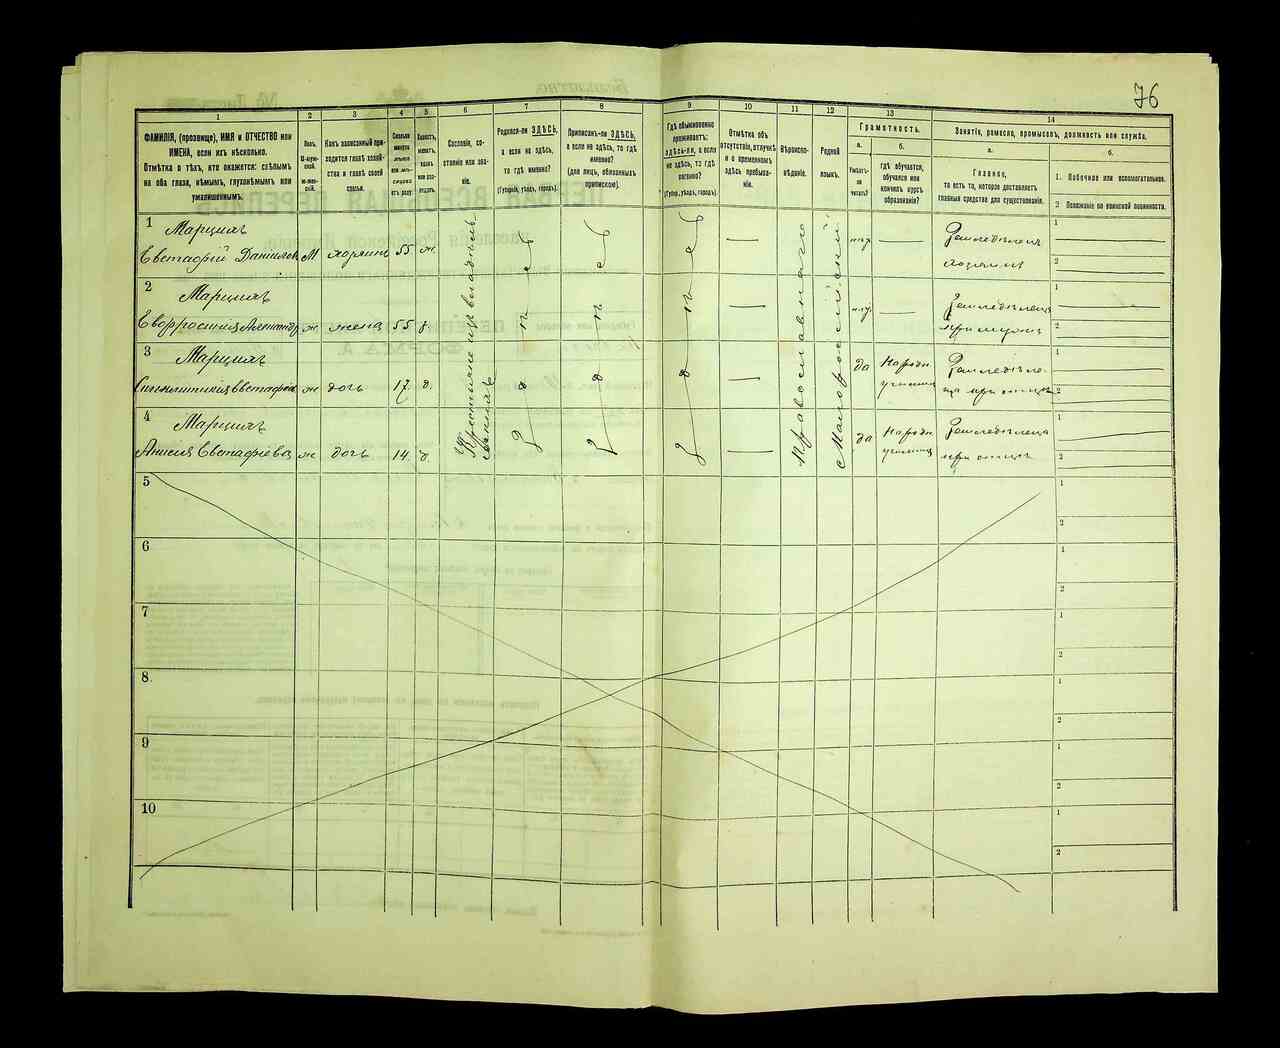 76
1
2
3
4
5
6
7
8
9
10
11
12
13
14
ФАМИЛІЯ, (прозвище), ИМЯ и ОТЧЕСТВО или
ИМЕНА, если ихъ нѣсколько.
Отмѣтка о тѣхъ, кто окажется: слѣпымъ
на оба глаза, нѣмымъ, глухонѣмымъ или
умалишеннымъ.
Полъ.
М-муж-
ской.
Ж-жен-
скій.
Какъ записанный при-
ходится главѣ хозяй-
ства и главѣ своей
семьи.
Сколько
минуло
лѣтъ
или мѣ-
сяцевъ
отъ роду
Холостъ,
женатъ,
вдовъ
или раз-
веденъ.
Сословіе, со-
стояніе или зва-
ніе.
Родился-ли ЗДѢСЬ,
а если не здѣсь,
то гдѣ именно?
(Губернія, уѣздъ, городъ).
Приписанъ-ли ЗДѢСЬ,
а если не здѣсь, то гдѣ
именно?
(для лицъ, обязанныхъ
припискою).
Гдѣ обыкновенно
проживаетъ:
здѣсь-ли, а если
не здѣсь, то гдѣ
именно?
(Губер., уѣздъ, городъ).
Отмѣтка объ
отсутствіи, отлучкѣ
и о временномъ
здѣсь пребыва-
ніи.
Вѣроиспо-
вѣданіе.
Родной
языкъ.
Грамотность.
а.
Умѣетъ-
ли
читать?
б.
гдѣ обучается,
обучался или
кончилъ курсъ
образованія?
Занятіе, ремесло, промыселъ, должность или служба.
а.
Главное,
то есть то, которое доставляетъ
главныя средства для существованія.
б.
1. Побочное или вспомогательное.
2 Положеніе по воинской повинности.
1
Марцихъ
Евстафій Данилов
М
хозяинъ
55
ж.
Крестьяне изъ владѣльч.
здѣсь
здѣсь
здѣсь
—
Православнаго
Малороссійскій
нѣтъ
—
Земледѣлецъ
хозяинъ
1
2
2
Марцихъ
ж
жена
55
з.
—
нѣтъ
Земледѣлица
при мужѣ
1
2
3
Марцихъ
ж
дочь
17
д.
—
да
Народн.
училищ
Земледѣли-
ца при отцѣ
1
2
4
Марцихъ
Анисія Евстафіева
ж
дочь
14.
д.
—
да
Народн
училищ
Земледѣлица
при отцѣ
1
2
5
1
2
6
1
2
7
1
2
8.
1
2
9
1
2
10
1
2